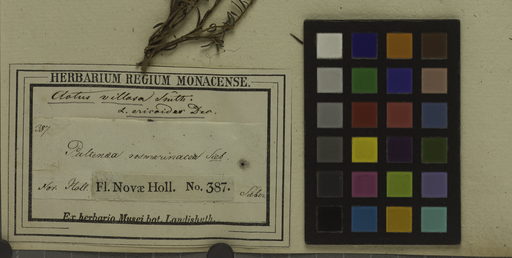 HERBARIUM REGIUM MONACENSE.
Aotus villosa Smth.
α. ericoides Dec.
387
Pultenaea rosmarinacea Sieb.
Nov. Holl. Fl. Novæ Holl. No. 387. Sieber
Ex herbario Musei bot. Landishuth.